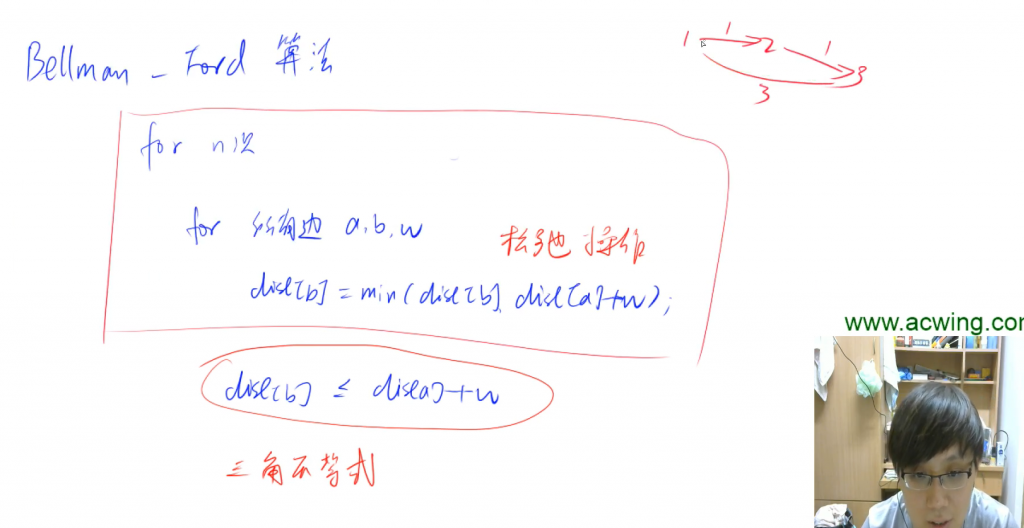 Bellman - Ford 算法
1 1 2 1 3
3
for n次
for 所有边 a,b,w
松弛操作
dist[b] = min(dist[b], dist[a]+w);
www.acwing.com
dist[b] ≤ dist[a]+w
三角不等式